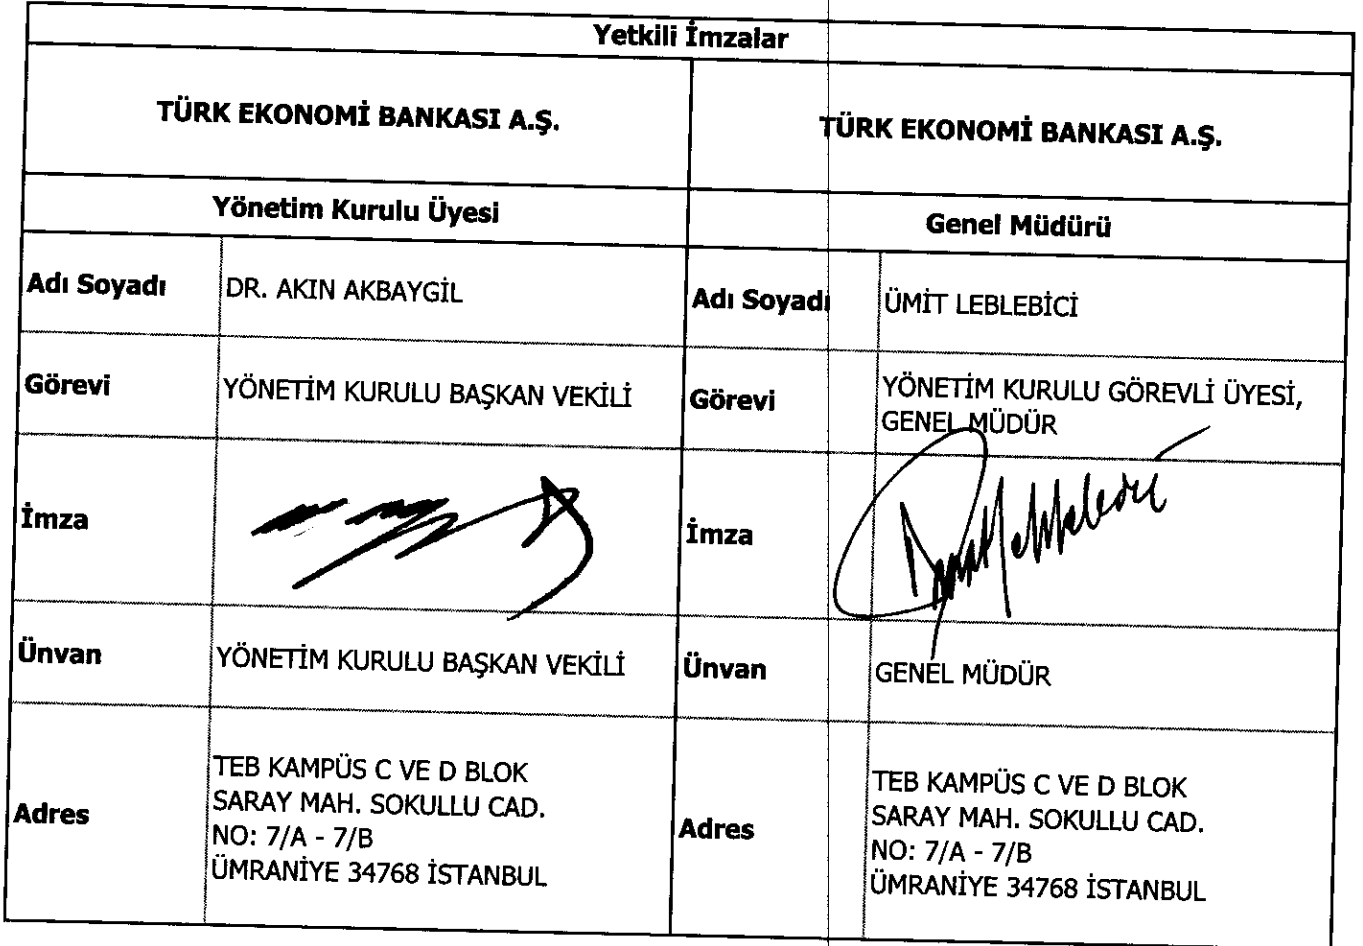 Yetkili İmzalar
TÜRK EKONOMİ BANKASI A.Ş.
TÜRK EKONOMİ BANKASI A.Ş.
Yönetim Kurulu Üyesi
Genel Müdürü
Adı Soyadı
DR. AKIN AKBAYGİL
Adı Soyadı
ÜMİT LEBLEBİCİ
Görevi
YÖNETİM KURULU BAŞKAN VEKİLİ
Görevi
YÖNETİM KURULU GÖREVLİ ÜYESİ,
GENEL MÜDÜR
İmza
İmza
Ünvan
YÖNETİM KURULU BAŞKAN VEKİLİ
Ünvan
GENEL MÜDÜR
Adres
TEB KAMPÜS C VE D BLOK
SARAY MAH. SOKULLU CAD.
NO: 7/A - 7/B
ÜMRANİYE 34768 İSTANBUL
Adres
TEB KAMPÜS C VE D BLOK
SARAY MAH. SOKULLU CAD.
NO: 7/A - 7/B
ÜMRANİYE 34768 İSTANBUL